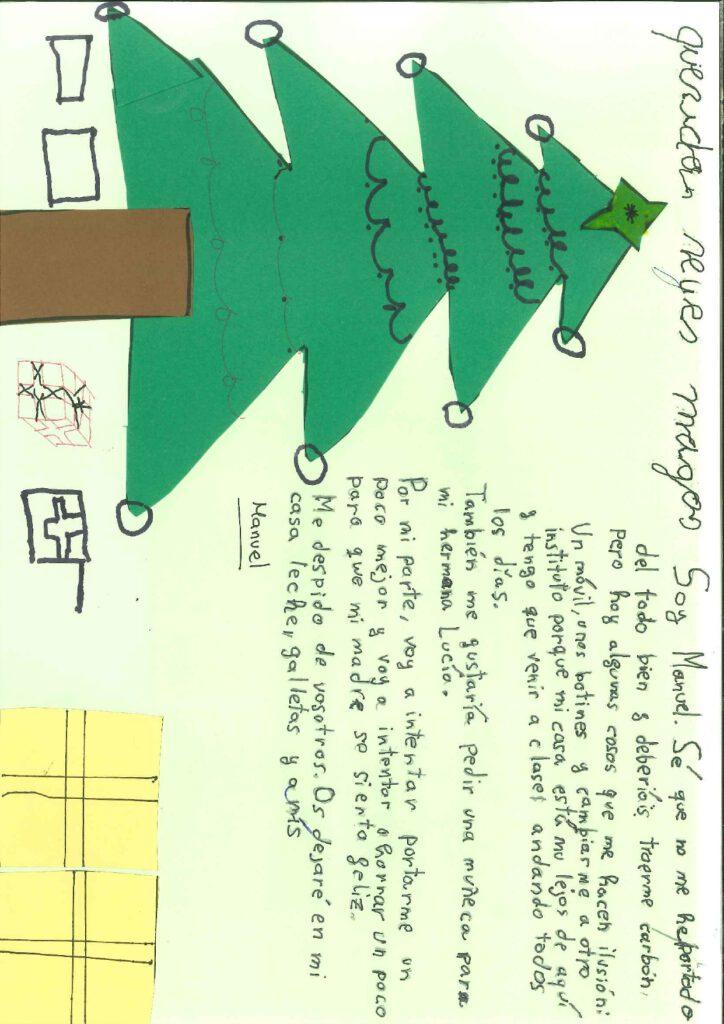 queridos reyes magos Soy Manuel. Sé que no me he portado
del todo bien y deberíais traerme carbón,
pero hay algunas cosas que me hacen ilusión:
Un móvil, unos botines y cambiarme a otro
instituto porque mi casa está mu lejos de aquí
y tengo que venir a clases andando todos
los días.
También me gustaría pedir una muñeca para
mi hermana Lucía.
Por mi parte, voy a intentar portarme un
poco mejor y voy a intentar ahorrar un poco
para que mi madre se sienta feliz.
Me despido de vosotros. Os dejaré en mi
casa leche, galletas y anís
Manuel